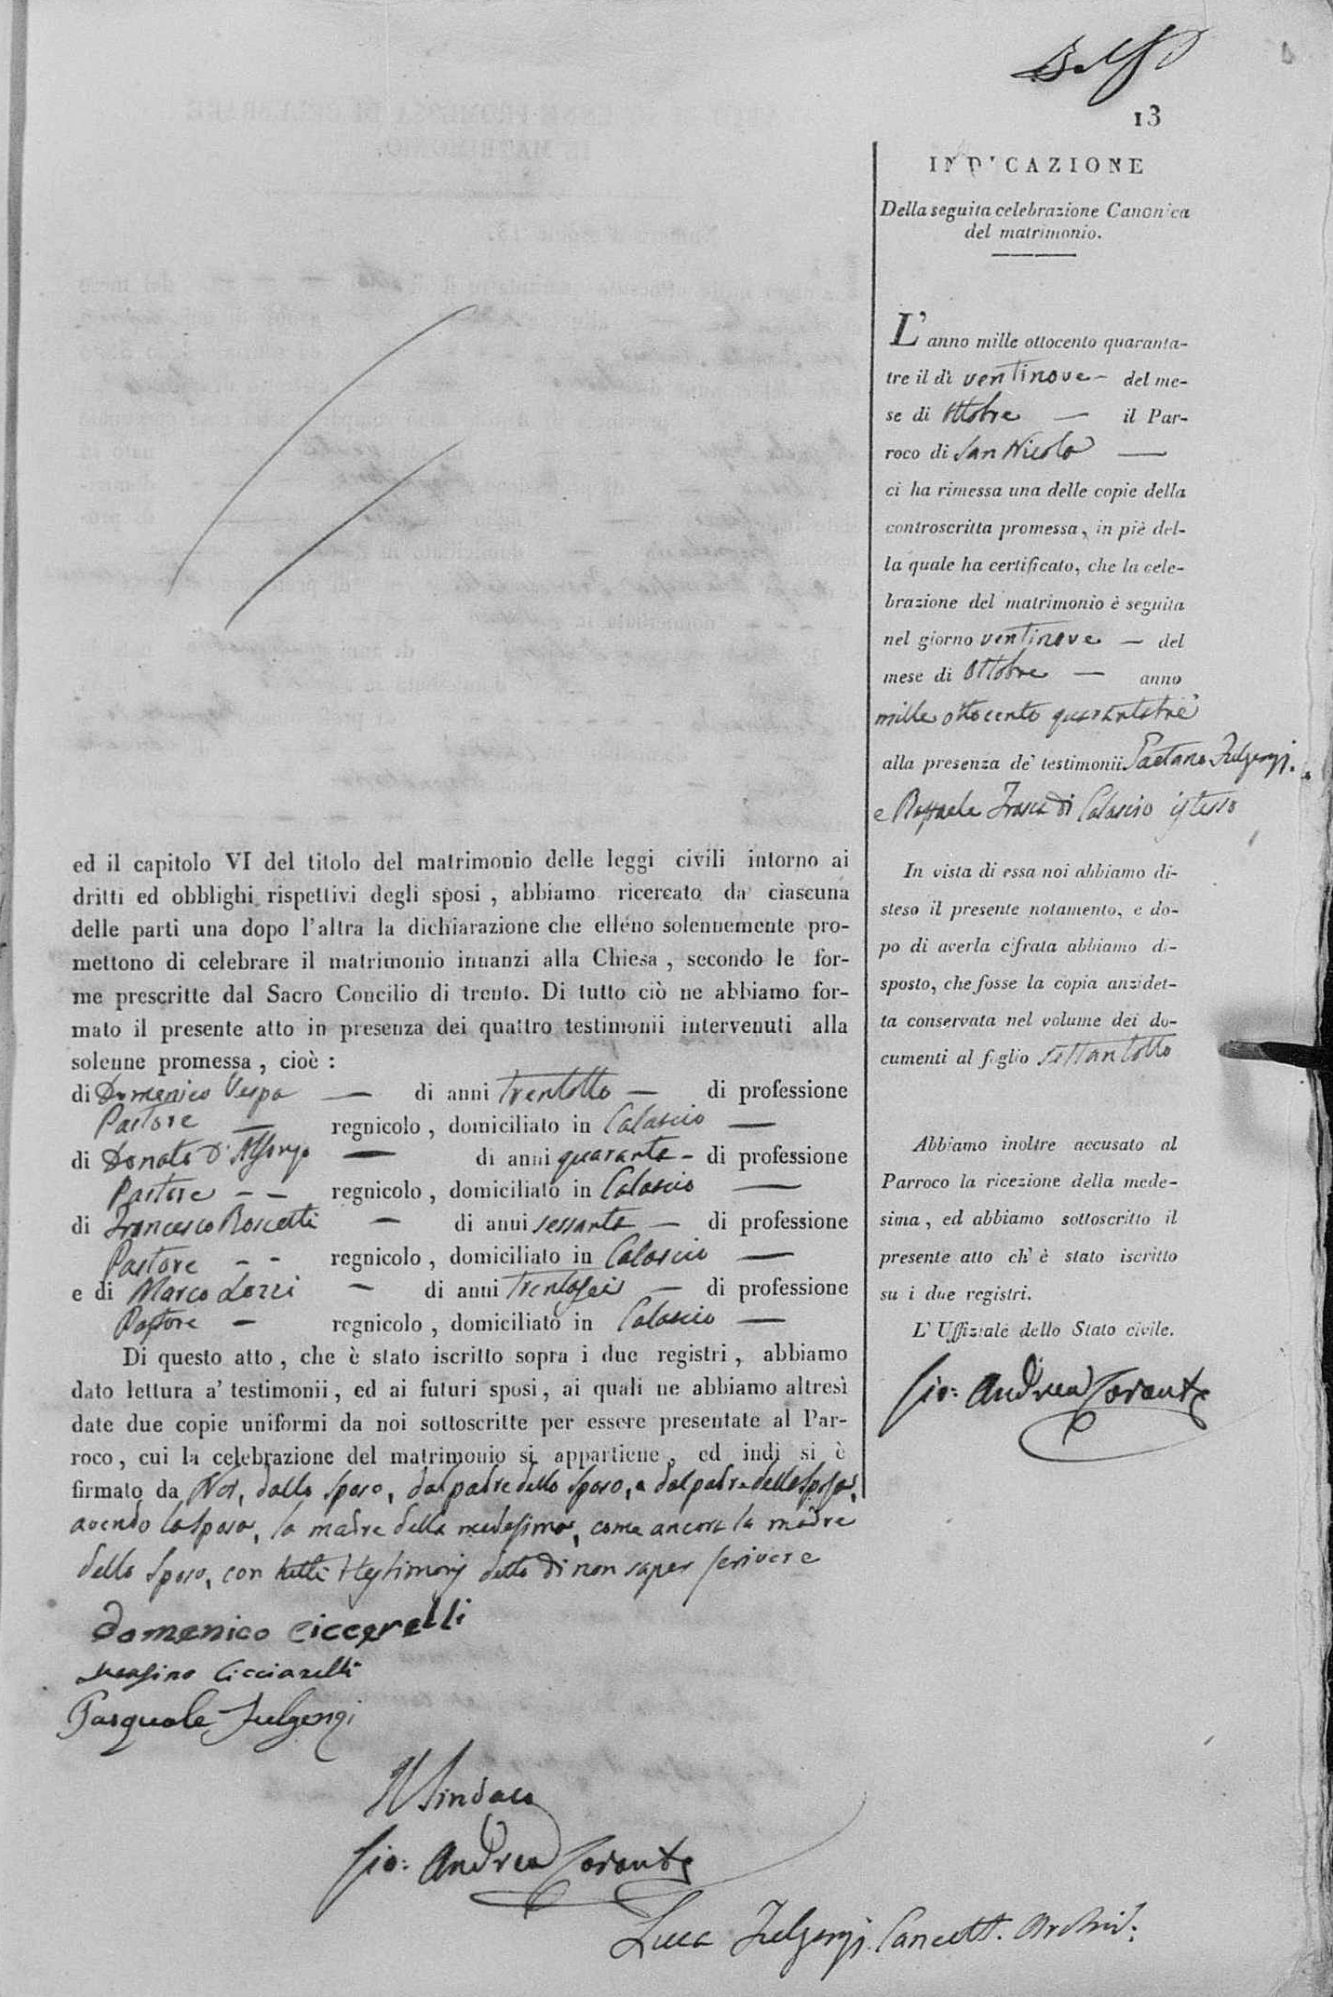 13
INDICAZIONE
Della seguita celebrazione Canonica
del matrimonio.
L'anno mille ottocento quaranta-
tre il dì ventinove - del me-
se di Ottobre — il Par-
roco di San Nicola —
ci ha rimessa una delle copie della
controscritta promessa, in piè del-
la quale ha certificato, che la cele-
brazione del matrimonio è seguita
nel giorno ventinove — del
mese di Ottobre — anno
mille ottocento quarantatrè
alla presenza de' testimonii Gaetano Fulgenzj
e Raffaele Frasca di Calascio istesso
In vista di essa noi abbiamo di-
steso il presente notamento, e do-
po di averla cifrata abbiamo di-
sposto, che fosse la copia anzidet-
ta conservata nel volume dei do-
cumenti al foglio settantotto
Abbiamo inoltre accusato al
Parroco la ricezione della mede-
sima, ed abbiamo sottoscritto il
presente atto ch' è stato iscritto
su i due registri.
L' Uffiziale dello Stato civile.
Gio: Andrea
ed il capitolo VI del titolo del matrimonio delle leggi civili intorno ai
dritti ed obblighi rispettivi degli sposi, abbiamo ricercato da ciascuna
delle parti una dopo l'altra la dichiarazione che elleno solennemente pro-
mettono di celebrare il matrimonio innanzi alla Chiesa, secondo le for-
me prescritte dal Sacro Concilio di trento. Di tutto ciò ne abbiamo for-
mato il presente atto in presenza dei quattro testimonii intervenuti alla
solenne promessa, cioè :
di Domenico Vespa — di anni trentotto — di professione
Pastore — regnicolo, domiciliato in Calascio —
di Donato D'Alfonzo — di anni quaranta - di professione
Pastore - - regnicolo, domiciliato in Calascio —
di Francesco Roscetti - di anni sessanta — di professione
Pastore - - regnicolo, domiciliato in Calascio —
e di Marco Lozzi - di anni trentasei — di professione
Pastore - regnicolo, domiciliato in Calascio —
Di questo atto, che è stato iscritto sopra i due registri, abbiamo
dato lettura a' testimonii, ed ai futuri sposi, ai quali ne abbiamo altresì
date due copie uniformi da noi sottoscritte per essere presentate al Par-
roco, cui la celebrazione del matrimonio si appartiene, ed indi si è
firmato da Noi, dallo sposo, dal padre dello sposo, e dal padre della sposa,
avendo la sposa, la madre della medesima, come ancora la madre
dello sposo, con tutti i testimonj detto di non saper scrivere
Domenico Ciccarelli
Cicciarelli
Pasquale Fulgenzi
Il Sindaco
Gio: Andrea
Luca Fulgenzj Cancell. Archiv: